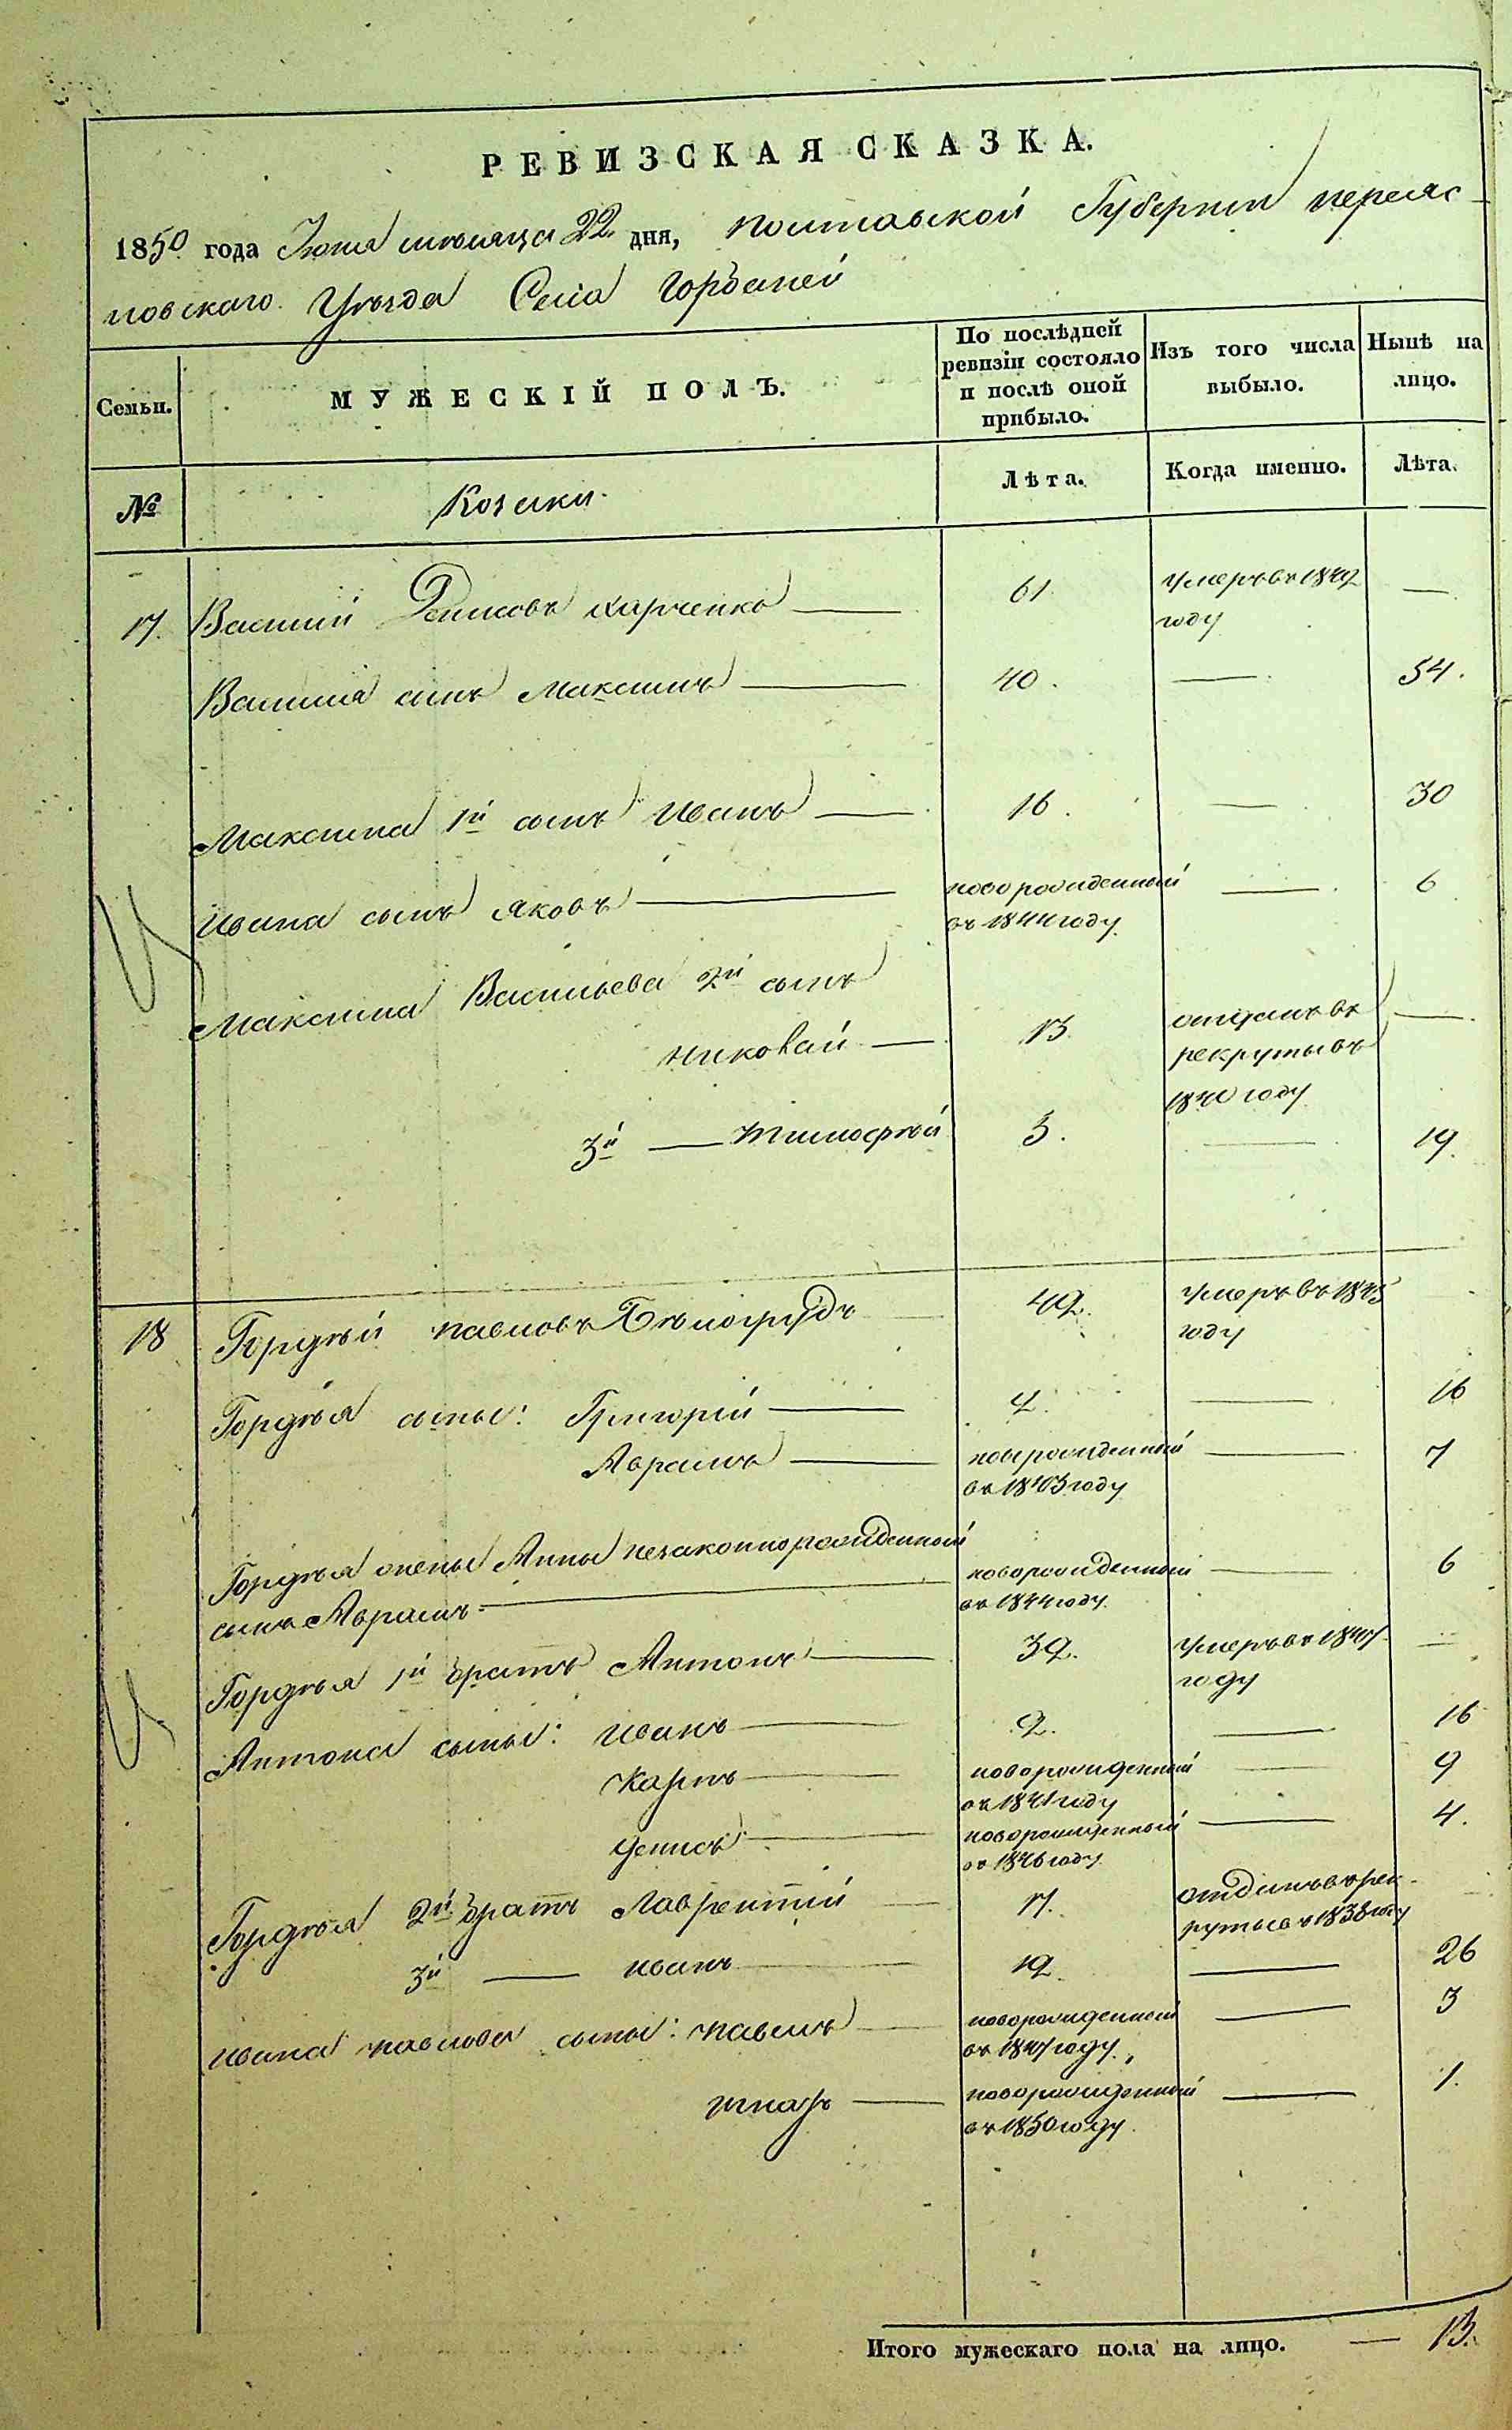 РЕВИЗСКАЯ СКАЗКА.
1850 года Июня месяца 22 дня, Полтавской Губернии переяс-
ловскаго Уезда Села Горбаней
Семьи. МУЖЕСКІЙ ПОЛЪ. По послѣдней ревизіи состояло и послѣ оной прибыло. Изъ того числа выбыло. Нынѣ на лицо.
№ Козаки. Лѣта. Когда именно. Лѣта.
17. Василий Денисовъ Харченко — 61 умеръ въ 1849 году —
Василия сынъ Максимъ — 40. — 54.
Максима 1й сынъ Иванъ — 16. — 30
Ивана сынъ Яковъ — новорожденный въ 1844 году — 6
Максима Васильева 2й сынъ
Николай — 13 отданъ въ рекруты въ 1840 году —
3й — Тимофѣй 5. — 19.
18 Гордѣй Павловъ Бѣлогрудъ 49. умеръ въ 1845 году
Гордѣя сыны: Григорій — 2. — 16
Аврамъ — новорожденный въ 1843 году — 7
Гордѣя жены Анны незаконнорожденный
сынъ Аврамъ — новорожденный въ 1844 году — 6
Гордѣя 1й братъ Антонъ — 39. умеръ въ 1847 году —
Антона сыны: Иванъ — 2. — 16
Карпъ — новорожденный въ 1841 году — 9
Денисъ — новорожденный въ 1846 году — 4.
Гордѣя 2й братъ Лаврентій 17. отданъ въ рекруты въ 1838 году
3й — Иванъ 12 — 26
Ивана Павлова сыны: Павелъ — новорожденный въ 1847 году — 3
— новорожденный въ 1850 году — 1.
Итого мужескаго пола на лицо. — 13.